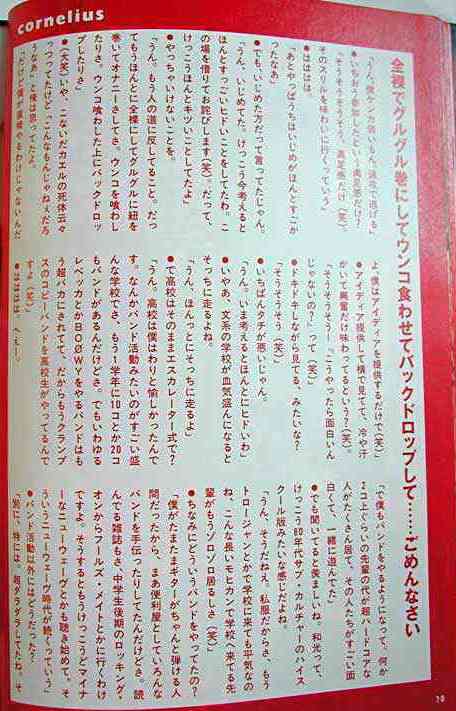 cornelius
全裸でグルグル巻にしてウンコ食わせてバックドロップして……ごめんなさい
「うん。僕ケンカ弱いもん。速攻で逃げる」
●いちおう参加したという満足感だけ?
「そうそうそうそう、高笑感だけ(笑)。
そのスリルを味わいに行くっていう」
●はははは。
「あとやっぱうちはいじめがほんとすごか
ったなあ」
●でも、いじめた方だって言ってたじゃん。
「うん。いじめてた。けっこう今考えると
ほんとすっごいヒドいことをしてたわ。こ
の場を借りてお詫びします(笑)。だって、
けっこうほんとキツいことしてたよ」
●やっちゃいけないことを。
「うん。もう人の道に反してること。だっ
てもうほんとに全裸にしてグルグルに紐を
巻いてオナニーさしてさ。ウンコを喰わし
たりさ。ウンコ喰わした上にバックドロッ
プしたりさ」
●(大笑)いや、こないだカエルの死体云々
っつってたけど「こんなもんじゃねぇだろ
うなぁ」と俺は思ってたよ。
「だけど僕が直接やるわけじゃないんだ
よ、僕はアイディアを提供するだけで(笑)」
●アイディア提供して横で見てて、冷や汗
かいて興奮だけ味わってるという?(笑)。
「そうそうそう! 『こうやったら面白いん
じゃないの?』って(笑)」
●ドキドキしながら見てる、みたいな?
「そうそうそう(笑)」
●いちばんタチが悪いじゃん。
「うん。いま考えるとほんとにヒドいわ」
●いやあ、文系の学校が血気盛んになると
そっちに走るよね。
「うん、ほんっとにそっちに走るよ」
●で高校はそのままエスカレーター式で?
「うん。高校は僕はわりと愉しかったんで
す。なんかバンド活動みたいのがすごい盛
んな学校でさ、もう1学年に10コとか20コ
もバンドがあるんだけどさ。でもいわゆる
レベッカとかBOØWYをやるバンドはも
う超バカにされてて、だからもうクランプ
スのコピーバンドを高校生がやってるんで
すよ(笑)」
●はははは、へぇー。
「で僕もバンドをやるようになって、何か
2コ上ぐらいの先輩の代が超ハードコアな
人がたくさん居て、その人たちがすごい面
白くて、一緒に遊んでた」
●でも聞いてると羨ましいね、和光って。
けっこう60年代サブ・カルチャーのハイス
クール版みたいな感じだよね。
「うん、そうだねえ。私服だからさ、もう
トロージャンとかで学校に来ても平気なの
ね。こんな長いモヒカンで学校へ来てる先
輩がもうゾロゾロ居るしさ(笑)」
●ちなみにどういうバンドをやってたの?
「僕がたまたまギターがちゃんと弾ける人
間だったから、まあ便利屋としていろんな
バンドを手伝ったりしてたんだけどさ。読
んでる雑誌もさ、中学生後期のロッキング・
オンからフールズ・メイトとかに行くわけ
ですよ。そうするともうけっこうどマイナ
ーなニューウェーヴとかも聴き始めて、そ
ういうニューウェーヴ時代が続くっていう」
●バンド活動以外にはどうだった?
「別に、特には。超ダラダラしてたね。そ